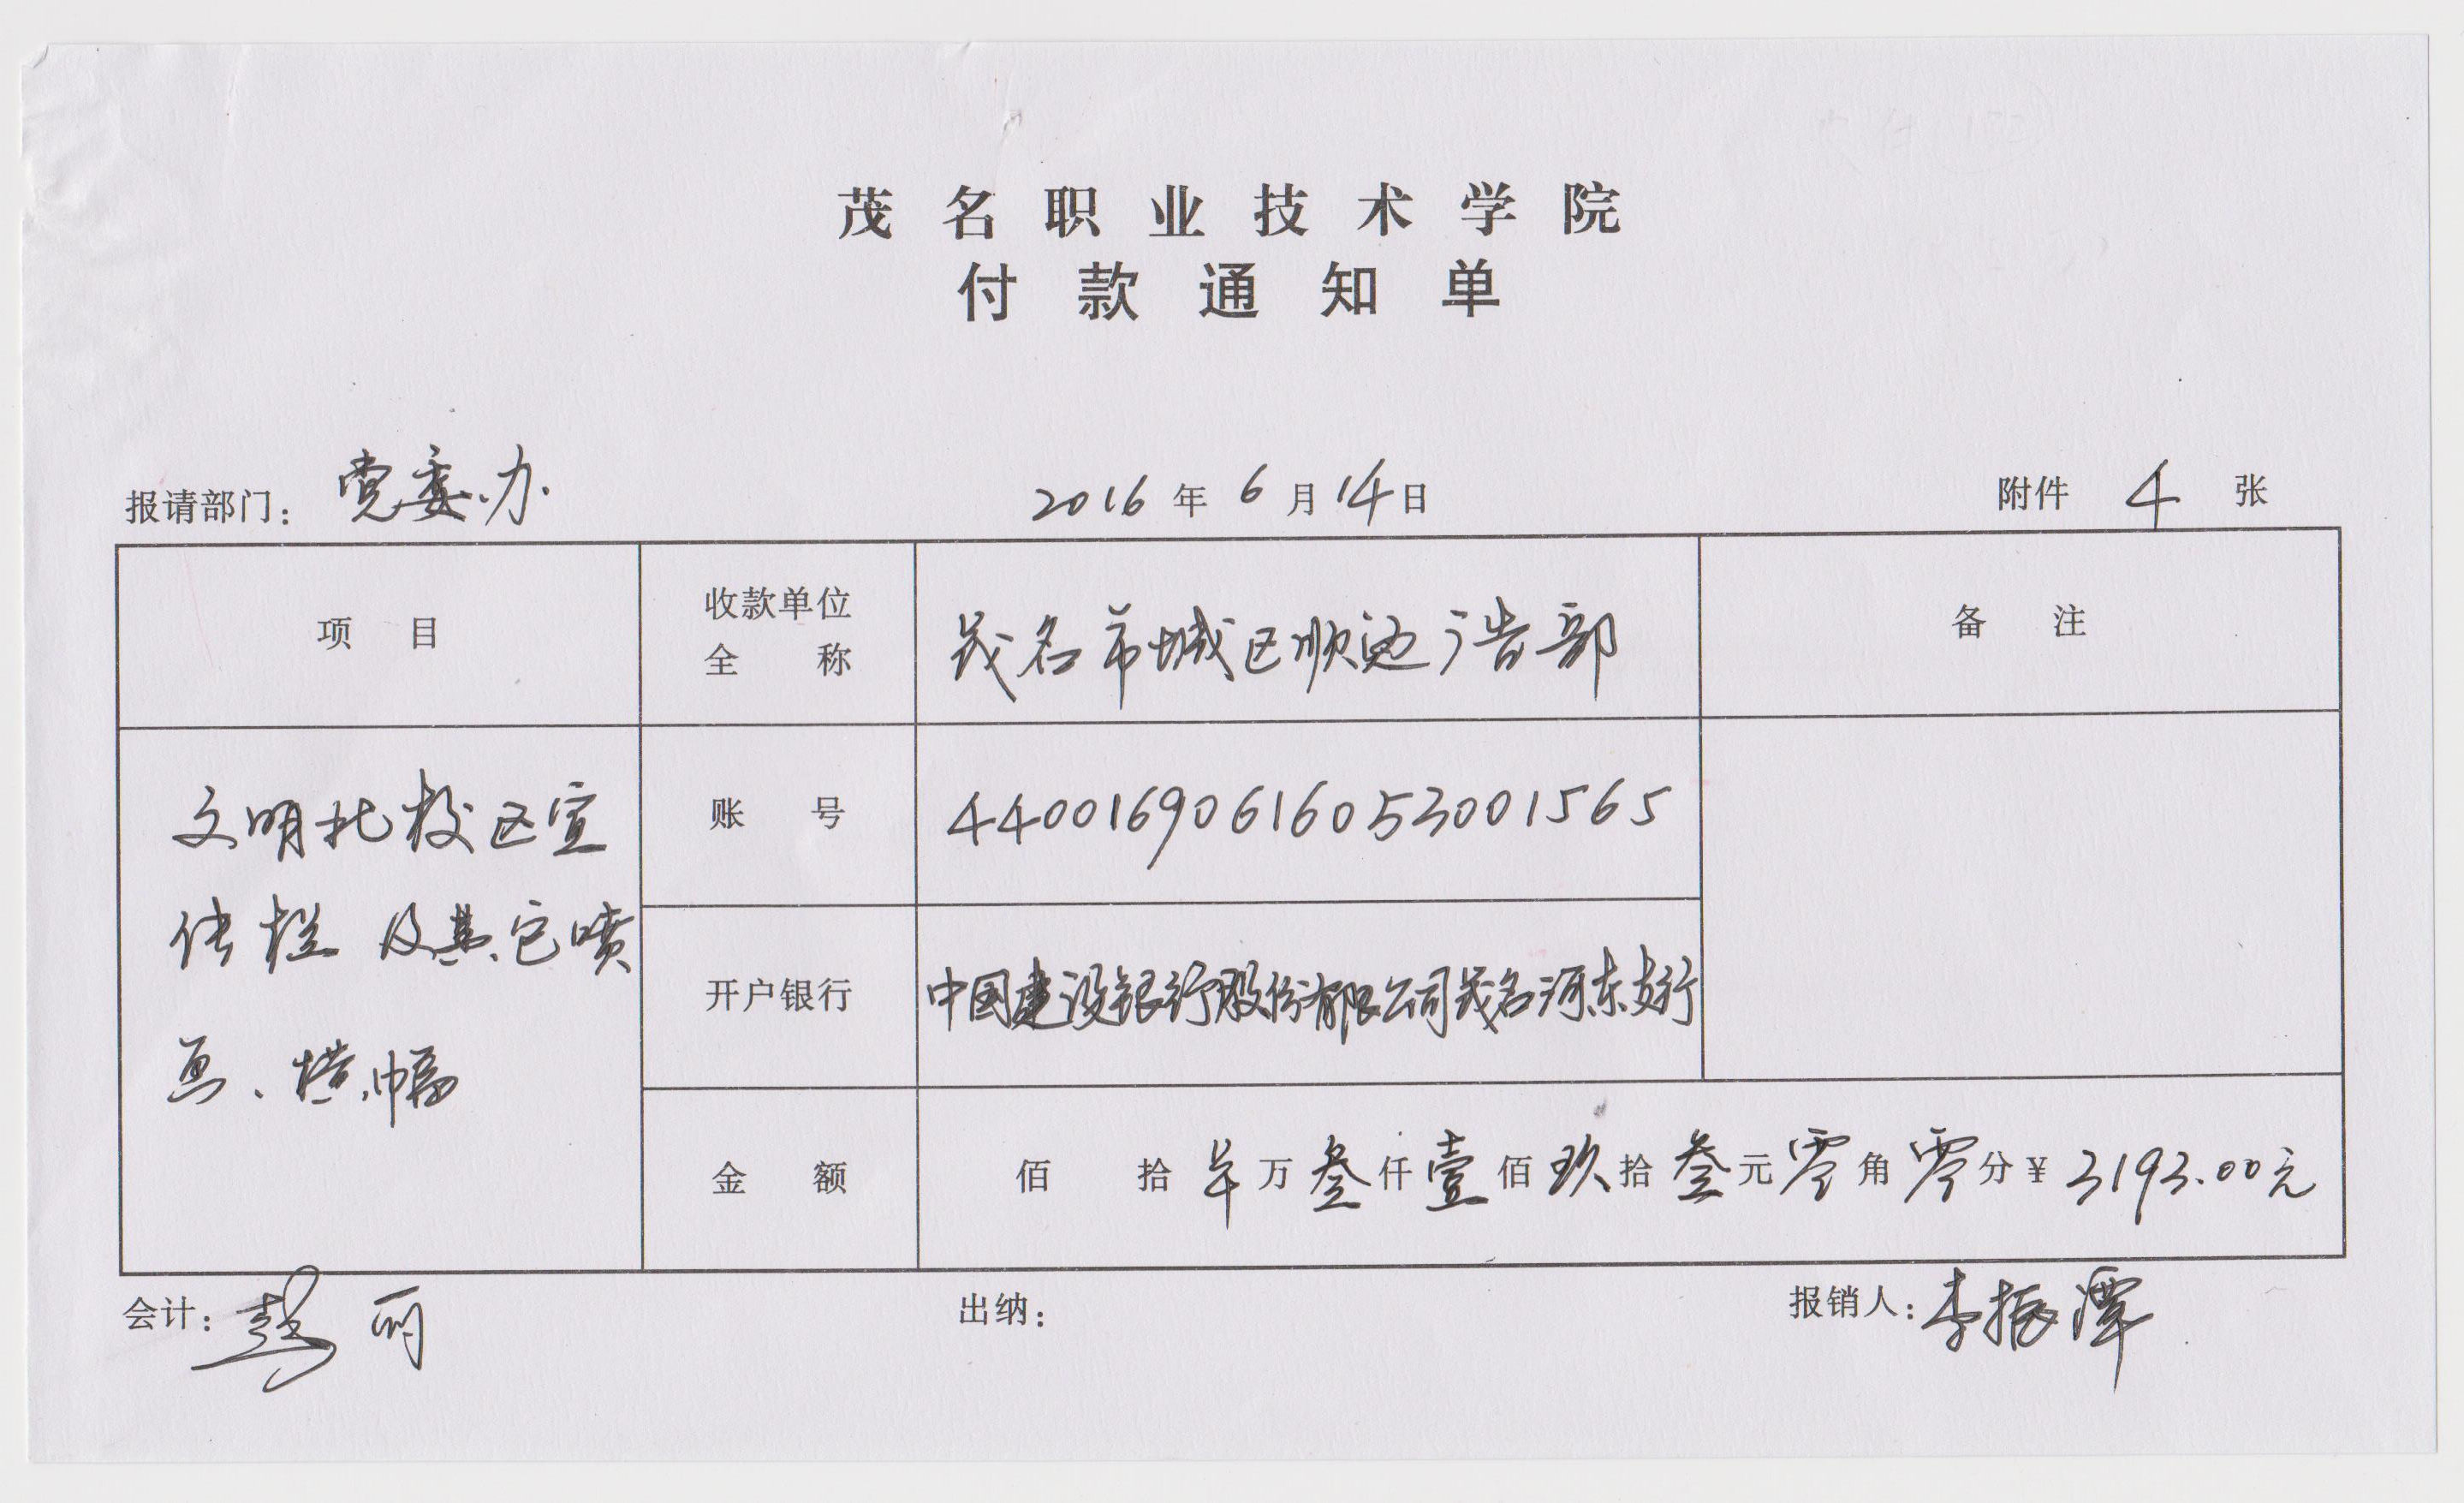 茂名职业技术学院
付款通知单
报请部门：党委办 2016年6月14日 附件 4 张
项目 收款单位全称 茂名市城区顺边广告部 备注
账号 44001690616053001565
文明北校区宣
传栏及其它喷
画、横幅
开户银行 中国建设银行股份有限公司茂名河东支行
金额 佰 拾 万叁仟壹佰玖拾叁元零角零分￥3193.00元
会计： 丽 出纳： 报销人：李振潭